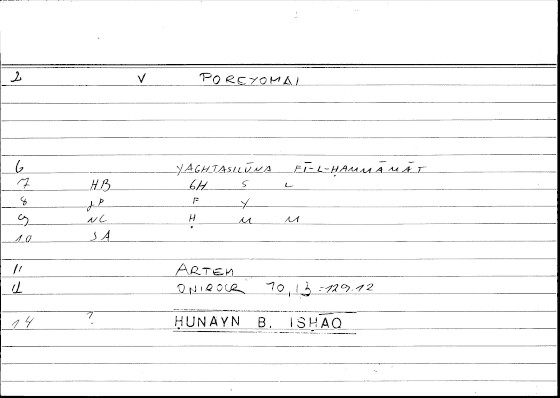 2 V POREYOMAI
6 YAGHTASILŪNA FĪ-L-ḤAMMĀMĀT
7 HB GH S L
8 JP F Y
9 NC Ḥ M M
10 SA
11 ARTEM
12 ONIROCR 10,13 = 129.12
14 ? ḤUNAYN B. ISḤĀQ